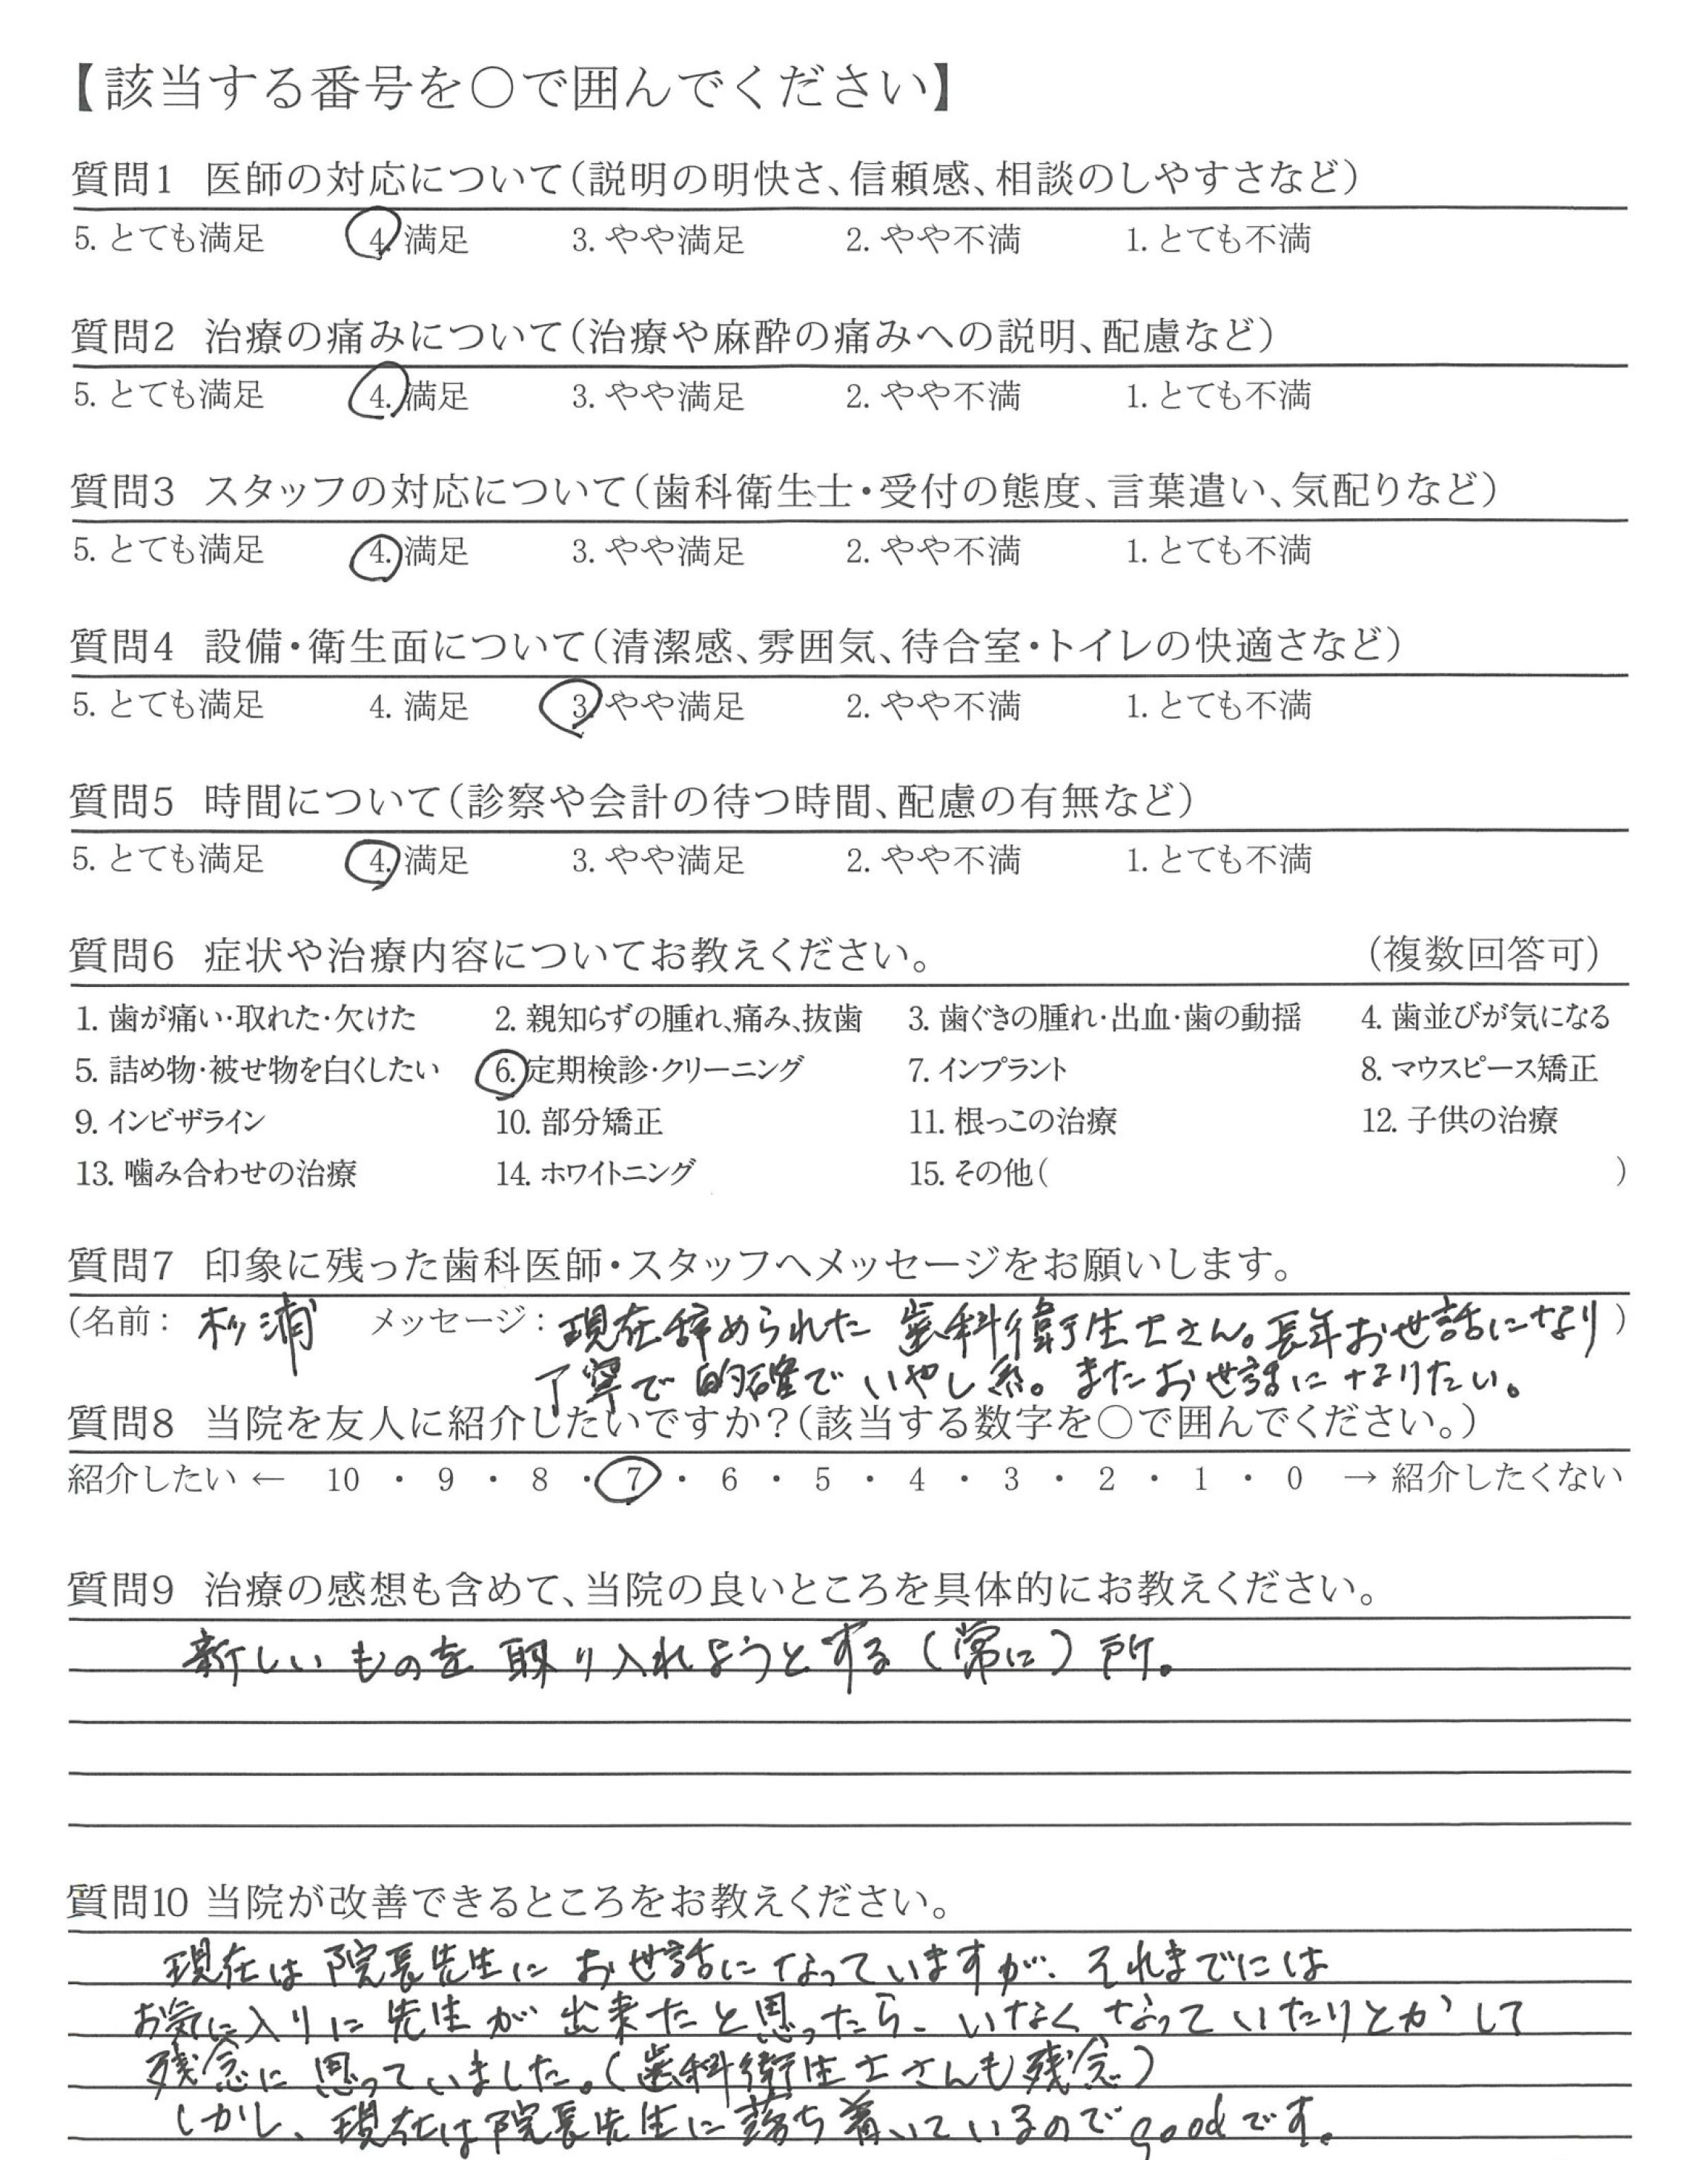 【該当する番号を○で囲んでください】
質問1 医師の対応について(説明の明快さ、信頼感、相談のしやすさなど)
5. とても満足 4. 満足 3. やや満足 2. やや不満 1. とても不満
質問2 治療の痛みについて(治療や麻酔の痛みへの説明、配慮など)
5. とても満足 4. 満足 3. やや満足 2. やや不満 1. とても不満
質問3 スタッフの対応について(歯科衛生士・受付の態度、言葉遣い、気配りなど)
5. とても満足 4. 満足 3. やや満足 2. やや不満 1. とても不満
質問4 設備・衛生面について(清潔感、雰囲気、待合室・トイレの快適さなど)
5. とても満足 4. 満足 3. やや満足 2. やや不満 1. とても不満
質問5 時間について(診察や会計の待つ時間、配慮の有無など)
5. とても満足 4. 満足 3. やや満足 2. やや不満 1. とても不満
質問6 症状や治療内容についてお教えください。 (複数回答可)
1. 歯が痛い・取れた・欠けた 2. 親知らずの腫れ、痛み、抜歯 3. 歯ぐきの腫れ・出血・歯の動揺 4. 歯並びが気になる
5. 詰め物・被せ物を白くしたい 6. 定期検診・クリーニング 7. インプラント 8. マウスピース矯正
9. インビザライン 10. 部分矯正 11. 根っこの治療 12. 子供の治療
13. 噛み合わせの治療 14. ホワイトニング 15. その他( )
質問7 印象に残った歯科医師・スタッフへメッセージをお願いします。
(名前: 杉浦 メッセージ: 現在辞められた 歯科衛生士さん。長年お世話になり)
丁寧で的確でいやし系。またお世話になりたい。
質問8 当院を友人に紹介したいですか?(該当する数字を○で囲んでください。)
紹介したい ← 10 ・ 9 ・ 8 ・ 7 ・ 6 ・ 5 ・ 4 ・ 3 ・ 2 ・ 1 ・ 0 → 紹介したくない
質問9 治療の感想も含めて、当院の良いところを具体的にお教えください。
新しいものを取り入れようとする(常に)所。
質問10 当院が改善できるところをお教えください。
現在は院長先生にお世話になっていますが、それまでには
お気に入りに先生が出来たと思ったら、いなくなっていたりとかして
残念に思っていました。(歯科衛生士さんも残念)
しかし、現在は院長先生に落ち着いているのでgoodです。